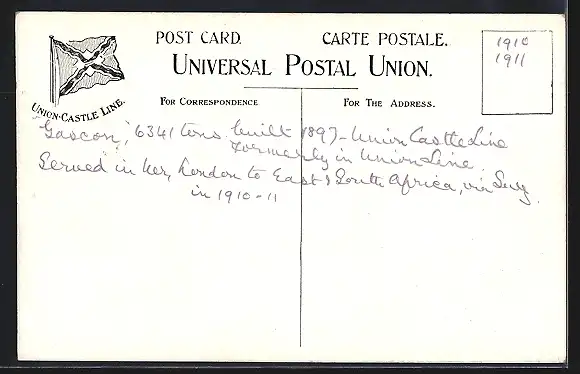 POST CARD. CARTE POSTALE.
UNIVERSAL POSTAL UNION.
UNION-CASTLE LINE.
FOR CORRESPONDENCE
FOR THE ADDRESS.
1910
1911
"Gascon", 6341 tons. built 1897 - Union Castle Line
Formerly in Union-Line.
Served in her, London to East & South Africa, via Suez
in 1910-11